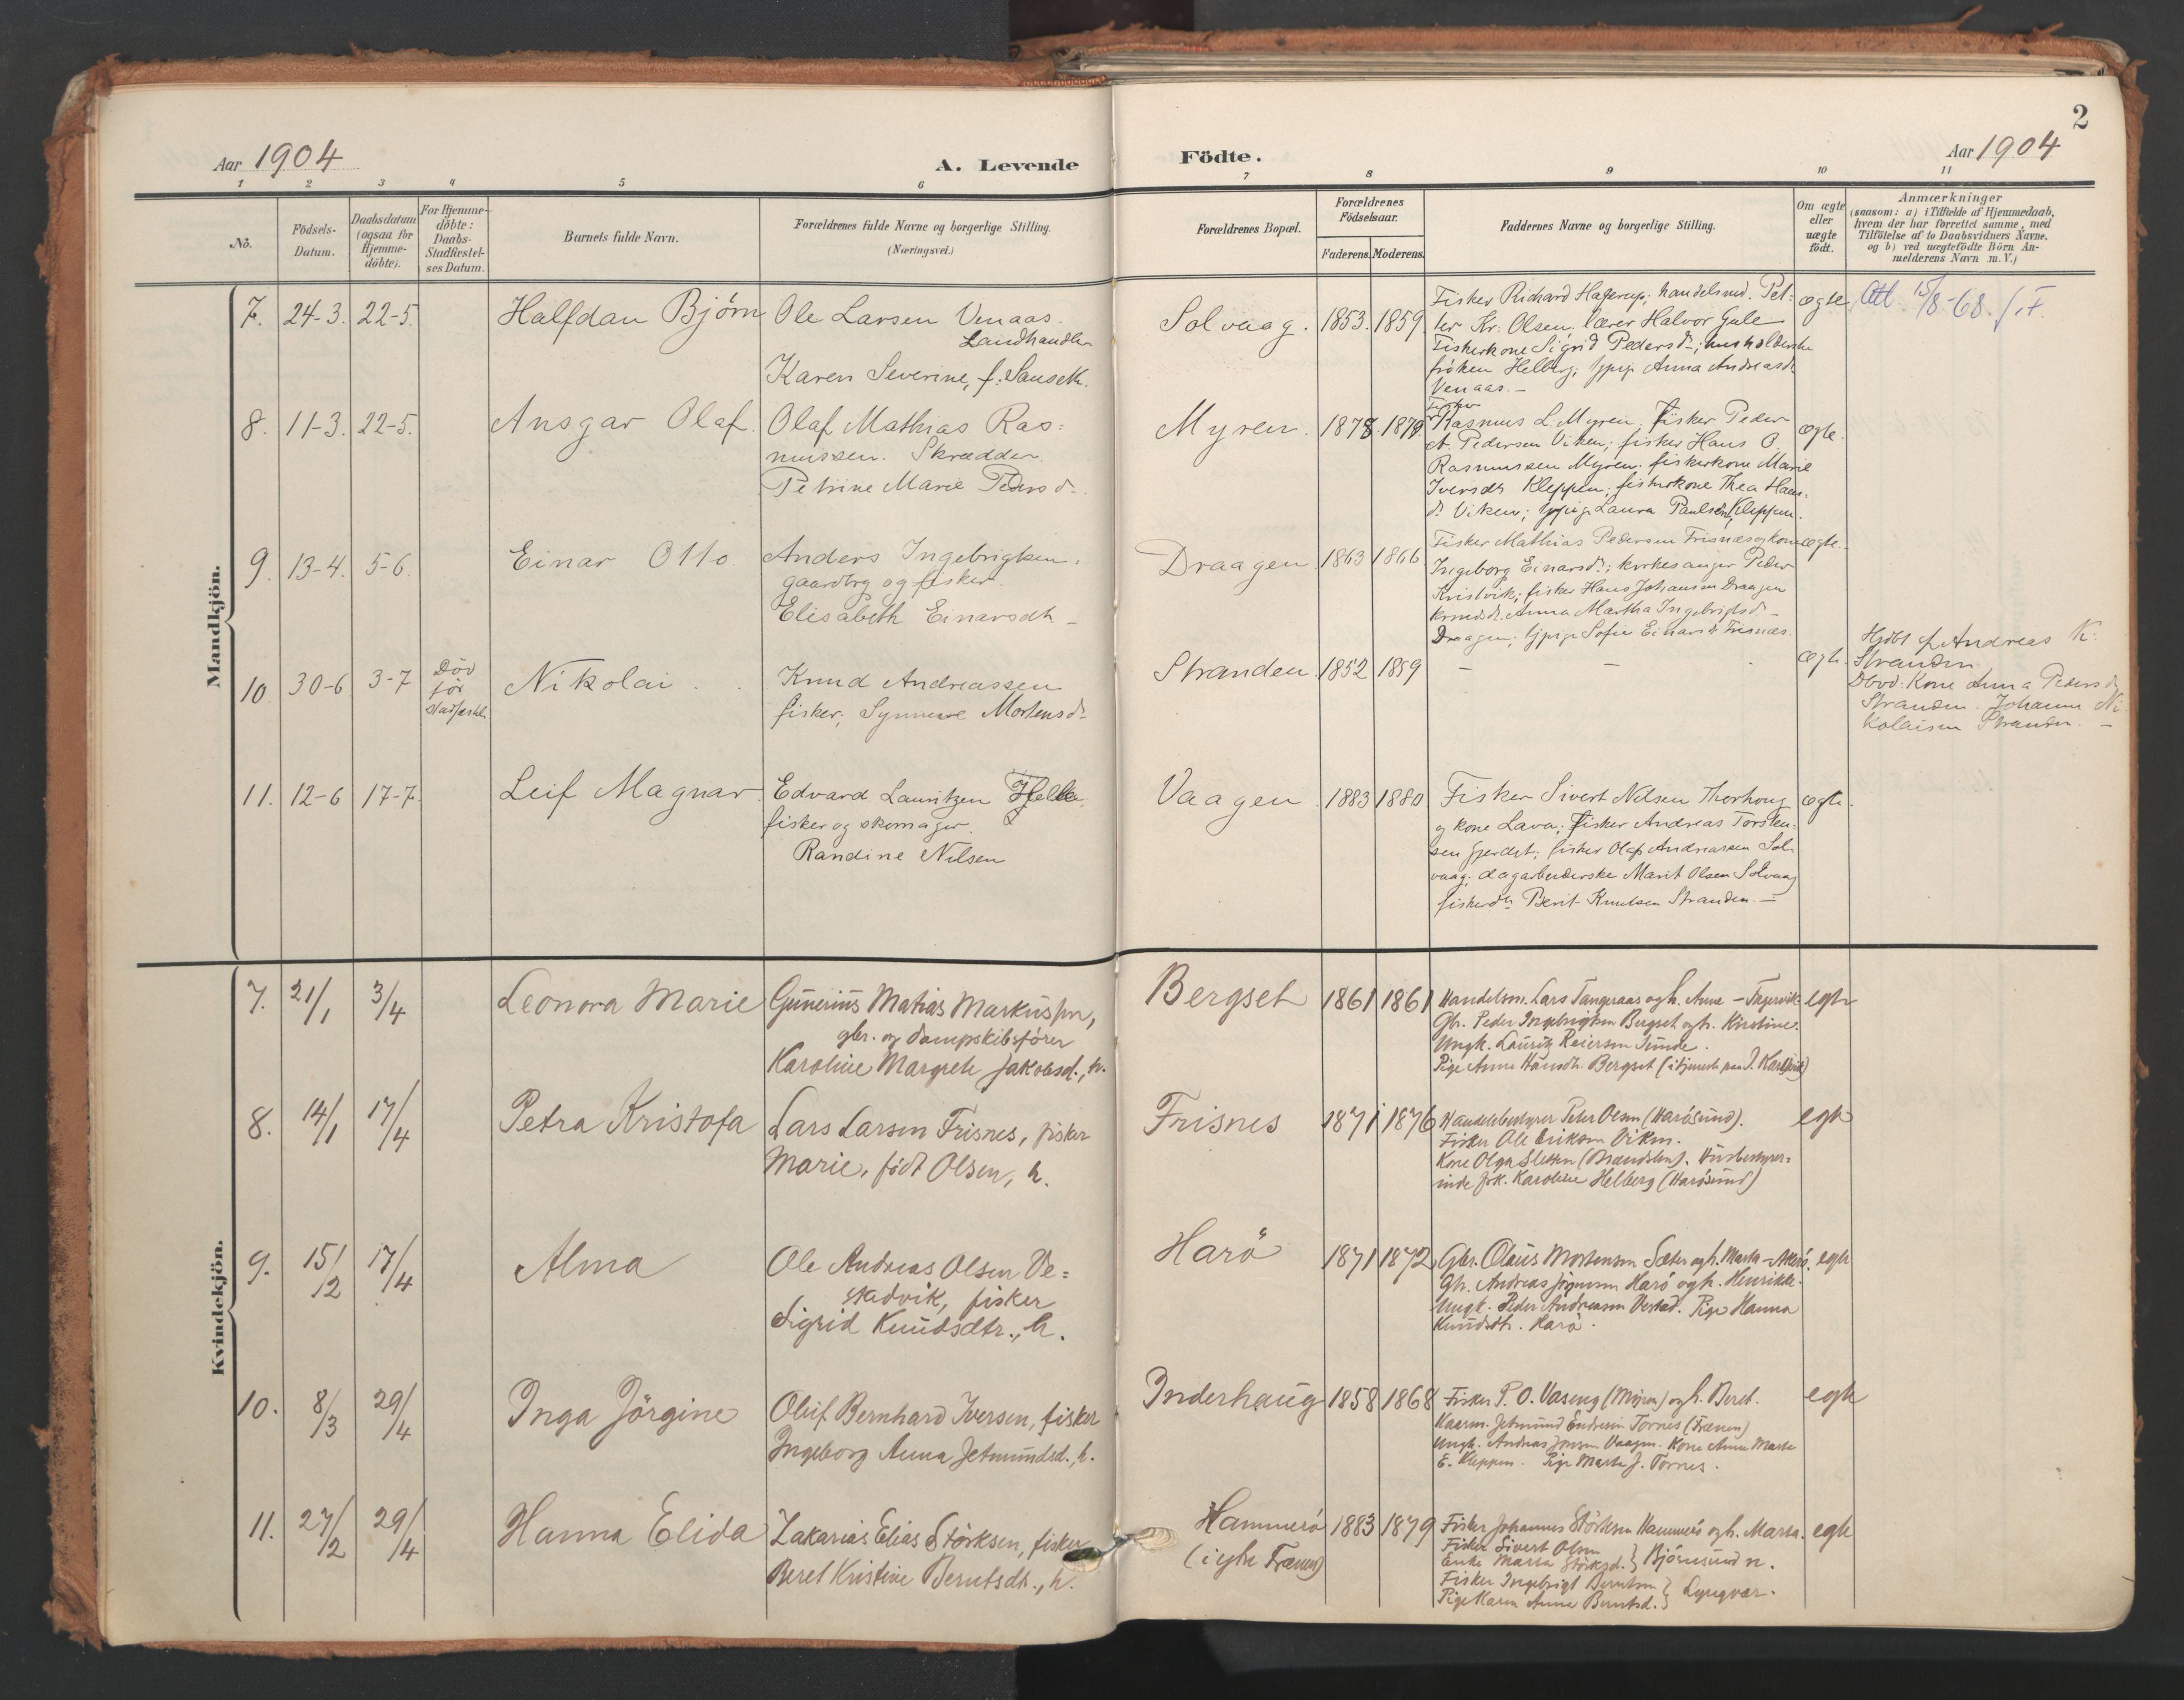 2
Aar 1904 A. Levende Födte. Aar 1904
1 2 3 4 5 6 7 8 9 10 11
No. Födsels-Datum. Daabsdatum (ogsaa for Hjemme-döbte). For Hjemme-döbte: Daabs-Stadfæstel-ses Datum. Barnets fulde Navn. Forældrenes fulde Navne og borgerlige Stilling. (Næringsvei.) Forældrenes Bopæl. Forældrenes Födselsaar. Faderens. Moderens. Faddernes Navne og borgerlige Stilling. Om ægte eller uægte födt. Anmærkninger (saasom: a) i Tilfælde af Hjemmedaab, hvem der har forrettet samme, med Tilföielse af to Daabsvidners Navne, og b) ved uægtefödte Börn An-melderens Navn m.V.)
Mandkjön.
7. 24-3. 22-5. Halfdan Bjørn Ole Larsen Venaas.
Landhandler
Karen Severine, f.
Solvaag. 1853. 1859
Fisker Richard Hagerup; handelsmd. Pet-
ter Kr. Olsen; lærer Halvor Gule
Fiskerkone Sigrid Pedersd.; husholderske
frøken Helberg; Anna Andreasd.
Venaas. –
ægte Att. 15/8-68.
8. 11-3. 22-5. Ansgar Olaf. Olaf Mathias Ras-
mussen. Skrædder.
Petrine Marie Pedersd.
Myren. 1878. 1879
Fisker
Rasmus L. Myren, fisker Peder
A. Pedersen Viken; fisker Hans O.
Rasmussen Myren. fiskerkone Marie
Iversdt Kleppen; fiskerkone Thea Hans-
d. Viken; Laura Paulsen, Kleppen.
ægte.
9. 13-4. 5-6. Einar Otto. Anders Ingebrigtsen.
gaardbrg og fisker.
Elisabeth Einarsdtr –
Draagen. 1863 1866
Fisker Mathias Pedersen Frisnæs og kone
Ingeborg Einarsd.; kirkesanger Peder
Kristvik; fisker Hans Johansen Draagen
Anna Martha Ingebrigtsd. –
Draagen; Sofie Einarsd. Frisnæs.
ægte.
10. 30-6 3-7 Död
för
stadfæstels.
Nikolai. Knud Andreassen
fisker; Synneve Mortensd.
Stranden 1852 1859 – –
ægte.
Hjdbt af Andreas K.
Stranden
Dbvd. Kone Anna Pedersd.
Stranden. Johanne Ni-
kolaisen Stranden. –
11. 12-6 17-7. Leif Magnar. Edvard Lauritzen
fisker og skomager.
Randine Nilsen
Vaagen. 1883 1880
Fisker Sivert Nilsen Thorhoug
og kone Lava; fisker Andreas Torsten-
sen Gjerdet; fisker Olaf Andreassen Sol-
vaag; dagarbeiderske Marit Olsen Solvaag
fiskerd. Berit Knudsen Stranden. –
ægte.
Kvindekjön.
7. 21/1 3/4 Leonora Marie Gunerius Matias Markussn,
gbr. og dampskibsfører
Karoline Margrete Jakobsd., h.
Bergset 1861 1861
Handelsm. Lars Tangeraas og h. Anne –
Gbr. Peder Ingebrigtsen Bergset og h. Kirstine.
Ungk. Laurits Reiersen Sunde.
Pige Anne Hansdtr. Bergset
egte
8. 14/1 17/4 Petra Kristofa Lars Larsen Frisnes, fisker
Marie, født Olsen, h.
Frisnes 1871 1876
Handelsbestyrer Peter Olsen (Harösund).
Fisker Ole Eriksen Viken.
Kone Olga Sletten. Husbestyrer-
inde frk. Karoline Helberg (Harösund)
egte
9. 15/2 17/4 Alma Ole Andreas Olsen Ve-
stadvik, fisker
Sigrid Knudsdtr., h.
Harö 1871 1872
Gbr. Olaus Mortensen Sæter og h. Marta – Akerö.
Gbr. Andreas Jörgensen Harö og h. Henrikke.
Ungk. Peder Andreasen Vestad. Pige Hanna
Knudsdtr. Harö.
egte
10. 8/3 29/4 Inga Jörgine Oluf Bernhard Iversen, fisker
Ingeborg Anna Jetmundsd., h.
Inderhaug 1858 1868
Fisker P. O. Vaseng (Myren) og h. Beret.
Kaarm. Jetmund Endresen Tornes (Frænen)
Ungk. Andreas Jonsen Vaagen. Kone Anne Marta
E. Kleppen. Pige Marta J. Tornes.
egte
11. 27/2 29/4 Hanna Elida Zakarias Elias Störksen, fisker
Beret Kristine Berntsdtr., h.
Hammerö
1883 1879
Fisker Johannes Störksen Hammerö og h. Marta.
Fisker Sivert Olsen
Enke Marta Störksd. } Björnsund n.
Fisker Ingebrigt Berntsen
Pige Karen Anne Berntsd. }
egte